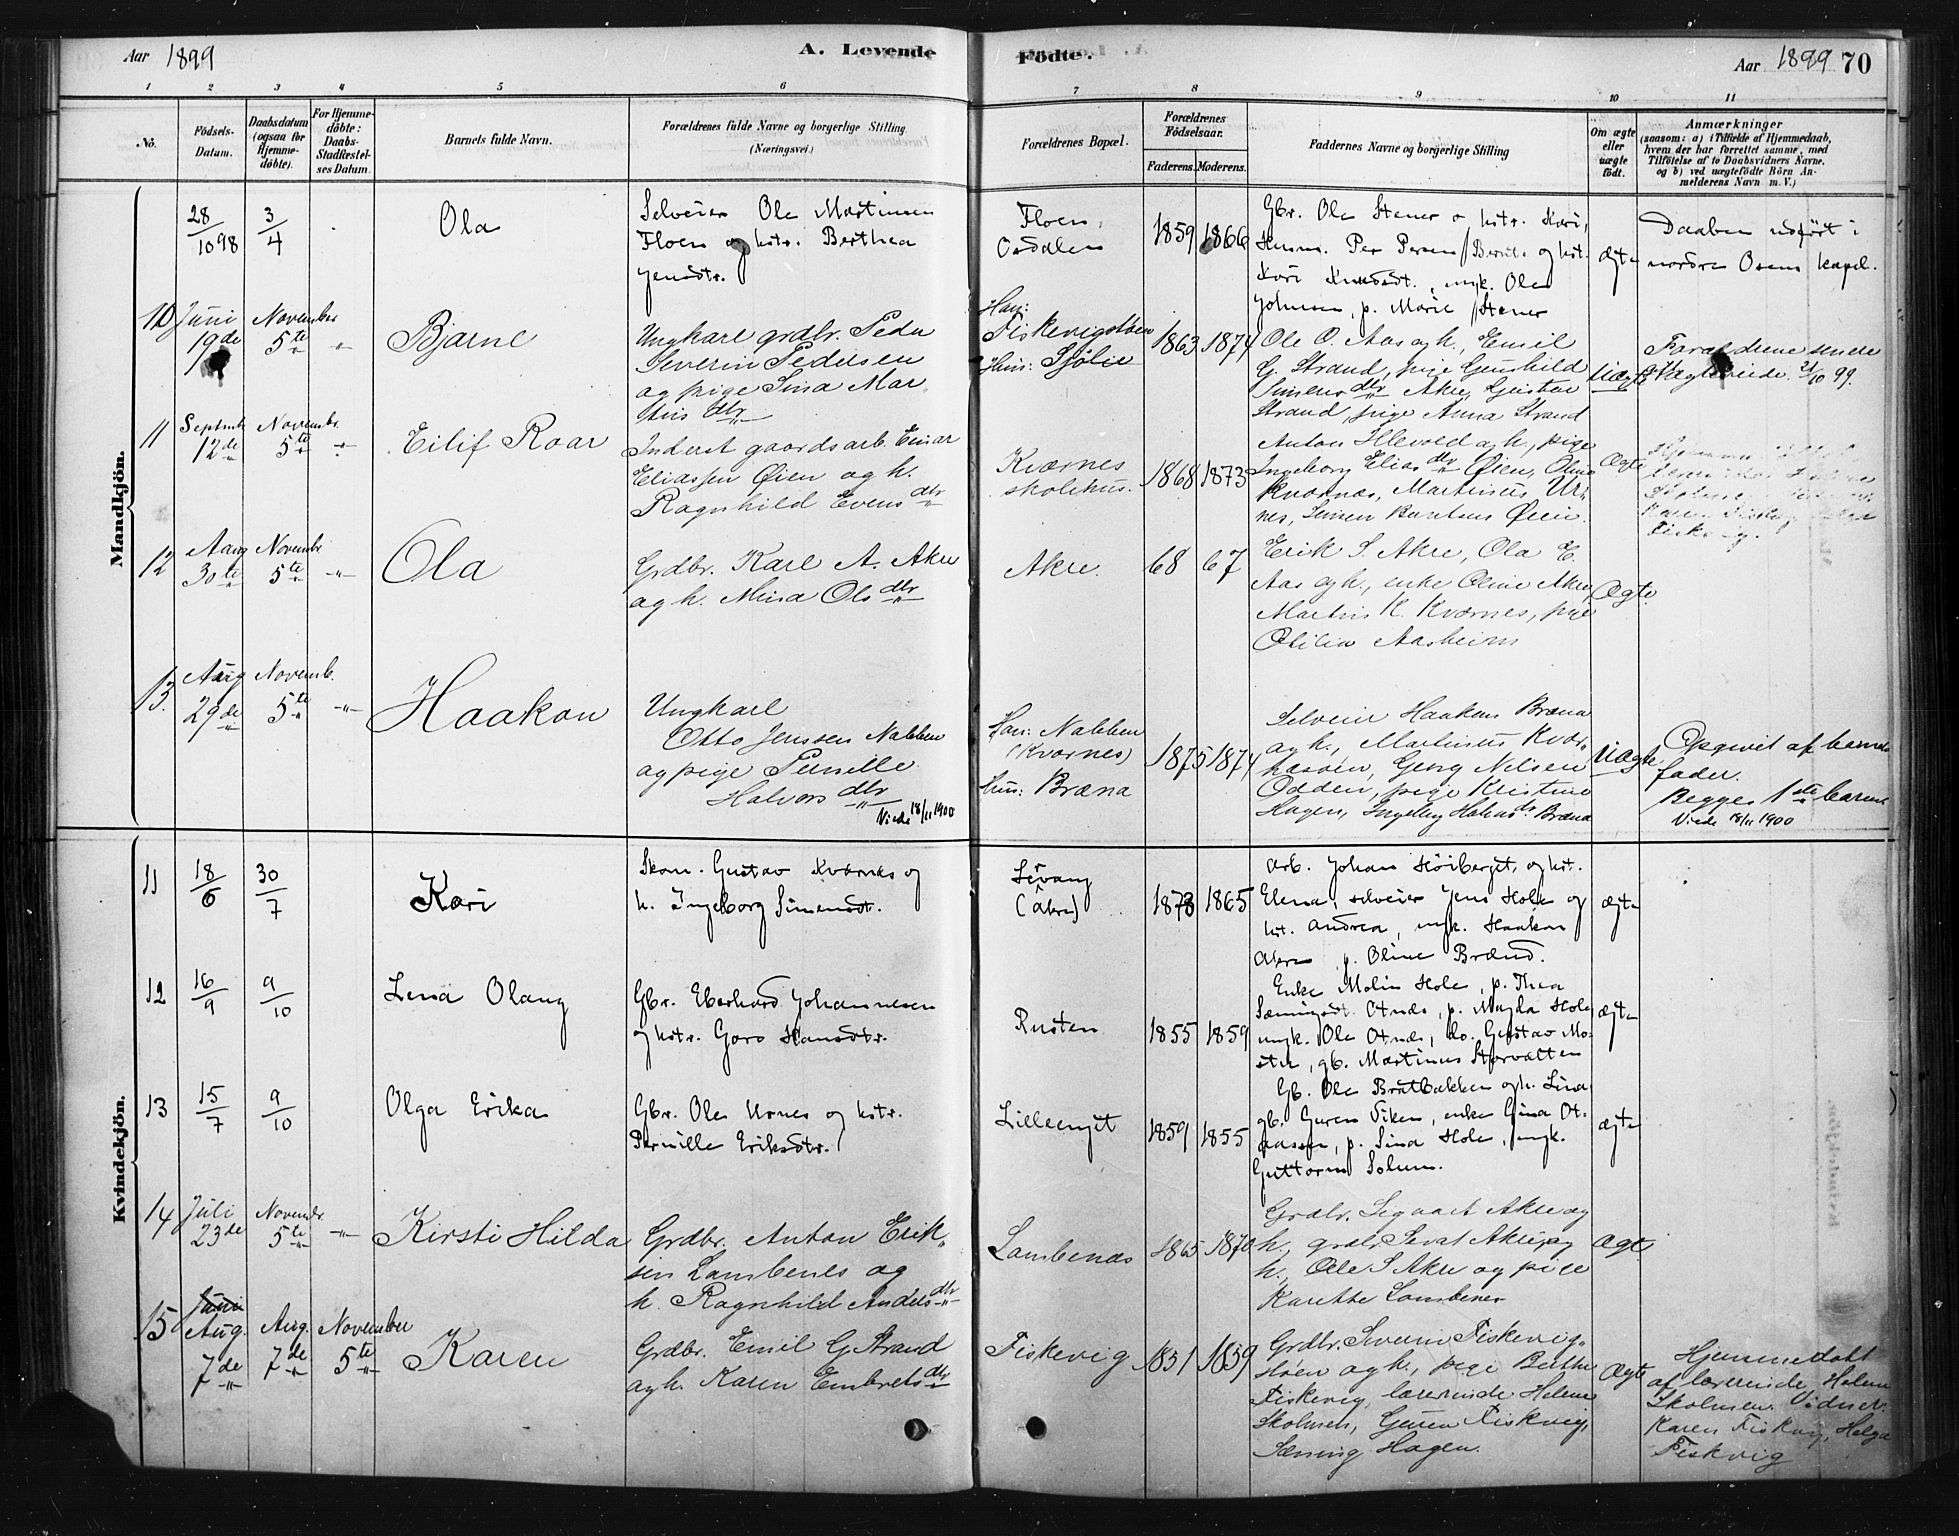 Aar 1899
A. Levende
Födte.
Aar 1899 70
1 2 3 4 5 6 7 8 9 10 11
No.
Födsels-
Datum.
Daabsdatum
(ogsaa för
Hjemme-
döbte).
For Hjemme-
döbte:
Daabs-
StadFestel-
ses Datum.
Barnets fulde Navn.
Forældrenes fulde Navne og borgerlige Stilling
(Næringsvei.)
Forældrenes Bopæl.
Forældrenes
Födselsaar.
Faderens. Moderens.
Faddernes Navne og borgerlige Stilling
Om ægte
eller
uægte
födt.
Anmærkninger
(saasom: a) i Tilfælde af Hjemmedaab,
hvem der har forrettet samme, med
Tilföielse af to Daabsvidners Navne.
og b) ved uægtefödte Börn An-
melderens Navn m. V.)
Mandkjön.
28/10 98
3/4
Ola
Selveier Ole Martinsen
Floen og hstr. Berthea
Jensdtr.
Floen,
Osdalen
1859 1866
Gbr. Ole Stener o hstr. Kari,
Husm. Per Persen / Berit og hst.
Kari Knudsdt., ungk. Ole
Johnsen, p. Marie Stener
ægte
Daaben udført i
nordre Osens kapel.
10
Juni
19de
November
5te
"
Bjarne
Ungkarl grdbr. Peder
Severin Pedersen
og pige Sina Mar-
tins dtr
Han:
Fiskevigstøen
Hun: Sjölie
1863 1874
Ole O. Aas og h., Emil
G. Strand, pige Gunhild
Simens dtr Akre, Gustav
Strand, pige Anna Strand
Uægte
Forældrene senere
ægteviede 21/10 99.
11
Septmb
12de
Novembr.
5te
"
Eilif Roar
Inderst gaardsarb. Einar
Eliassen Øien og h.
Ragnhild Evens dtr
Kværnes
skolehus.
1868 1873
Anton Illevold og h., pige
Ingeborg Elias dtr Øien, Oline
Kværnes, Martinus Ur-
nes, Simen Berntsen Øien.
Ægte
12
Aug
30te
Novembr
5te
"
Ola
Grdbr. Karl A. Akre
og h. Mina Ols dtr
Akre.
68 67
Erik S. Akre, Ola E.
Aas og h., enke Oline Akre,
Martin K. Kværnes, pige
Otilia Aasheim
Ægte
13.
Aug
29de
Novemb.
5te
"
Haakon
Ungkarl
Otto Jenssen Nabben
og pige Pernille
Halvors dtr
Viede 18/11 1900
Han: Nabben
(Kværnes)
Hun: Bræna
1875 1874
Selveier Haakon Bræna
og h., Martinus Kvær-
nessöen, Georg Nilsen
Odden, pige Kristine
Hagen, Ingeborg Halvorsdr Bræna
Uægte
Opgivet af barnets
fader.
Begges 1ste barn.
Viede 18/11 1900
Kvindekjön.
11
18/6
30/7
Kari
Skom. Gustav Kværnes og
h. Ingeborg Simensdt.
Levang
(Akre)
1873 1865
Arb. Johan Höiberget, og hst.
Elena, selveier Jens Hole og
hst. Andrea, ungk. Haakon
Akre, p. Oline Brænd.
ægte
12
16/9
9/10
Lena Olaug
Gbr. Eberhard Johannesen
og hstr. Goro Hansdtr.
Rusten
1855 1859
Enke Malin Hole, p. Thea
Sæmingsdt. Otnes, p. Magda Hole,
ungk. Ole Otnes, do. Gustav Mo-
sten, gb. Martinus Storvolten
ægte
13
15/7
9/10
Olga Erika
Gbr. Ole Urnes og hstr.
Pernille Eriksdtr.
Lilleenget
1859 1855
Gb. Ole Bratbakken og h. Lina
gb. Guren Viken, enke Gina Ot-
nessen, p. Sina Hole, ungk.
Guttorm Solum.
ægte
14
Juli
23de
Novembr.
5te
"
Kirsti Hilda
Grdbr. Anton Erik-
sen Lombenes og
h. Ragnhild Anders dtr
Lombenæs
1865 1870
Grdbr. Sigvart Akre og
h., grdbr. Sivat Akre og
h., Ole S. Akre og pige
Karethe Lombenes
Ægte
15
Juni
Aug.
7de
Aug.
7de
November
5te
Karen
Grdbr. Emil G. Strand
og h. Karen Embrets dtr
Fiskevig
1851 1859
Grdbr. Severin Fiskevig-
støen og h., pige Berthe
Fiskevig, lærerinde Helene
Skolmen, Guren Fiskvig,
Sæming Hagen.
Ægte
Hjemmedöbt
af lærerinde Helene
Skolmen. Vidner:
Karen Fiskvig, Helga
Fiskvig